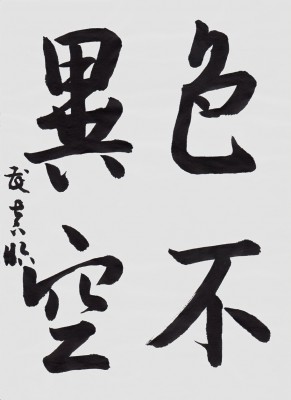 色不
異空